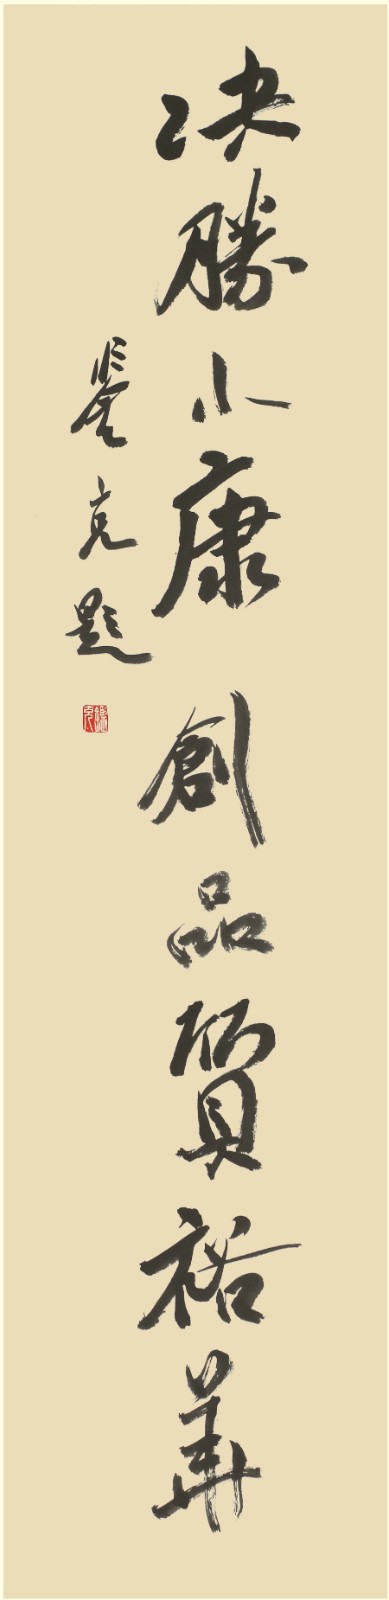 决勝小康創品質裕華
克題